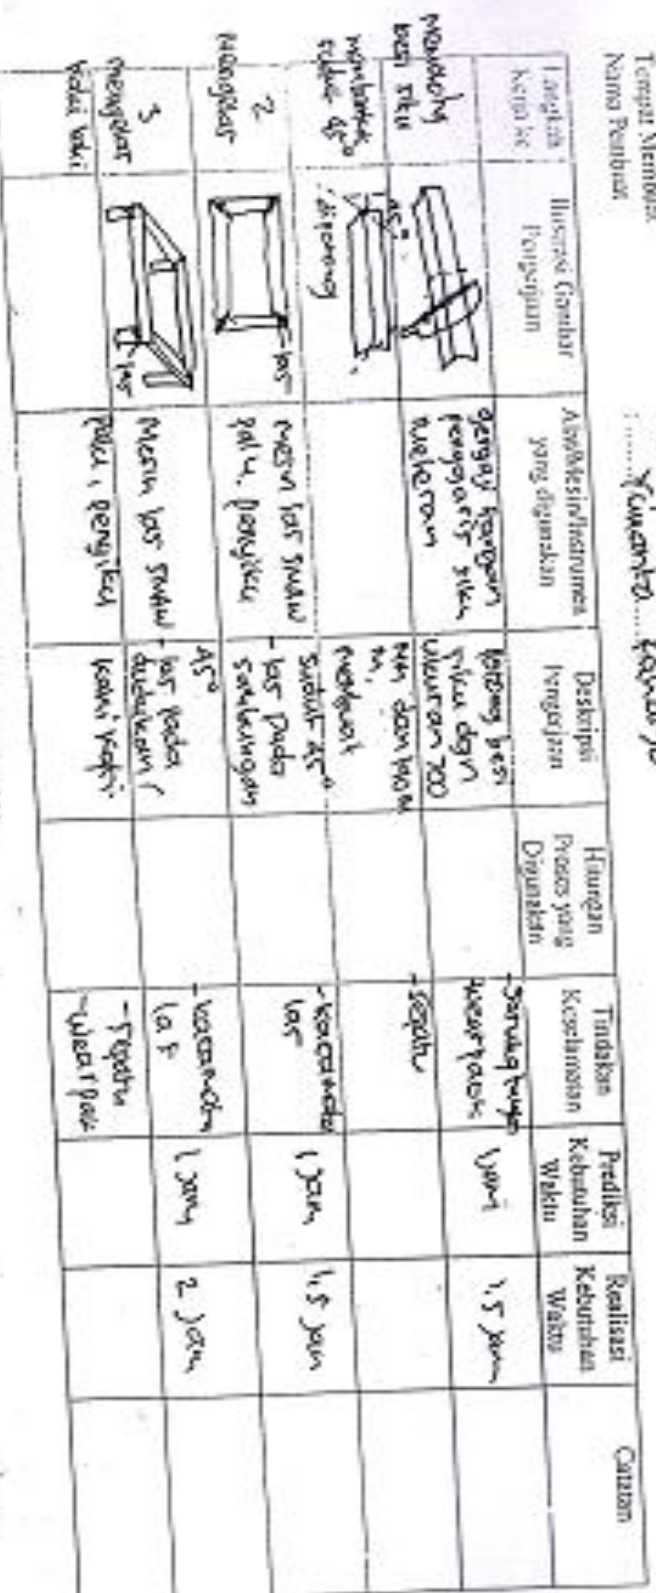 Tempat Membuat
Nama Pembuat :
Langkah Kerja ke
Ilustrasi Gambar Pengerjaan
Alat/Mesin/Instrumen yang digunakan
Deskripsi Pengerjaan
Hitungan Proses yang Digunakan
Tindakan Keselamatan
Prediksi Kebutuhan Waktu
Realisasi Kebutuhan Waktu
Catatan
besi siku
45°
gergaji tangan
penggaris siku
meteran
potong besi
siku dgn
ukuran 700
sarung tangan
wearpack
1 jam
1,5 jam
membentuk
sudut 45°
dipotong
membuat
- sepatu
2
mengelas
- las
mesin las SMAW
palu, penyiku
sudut 45°
- las pada
sambungan
- kacamata
las
1 jam
1,5 jam
3
mengelas
kaki
las
Mesin las SMAW
palu, penyiku
45°
- las pada
dudukan /
kaki
- kacamata
las
1 jam
2 jam
- sepatu
- wearpack